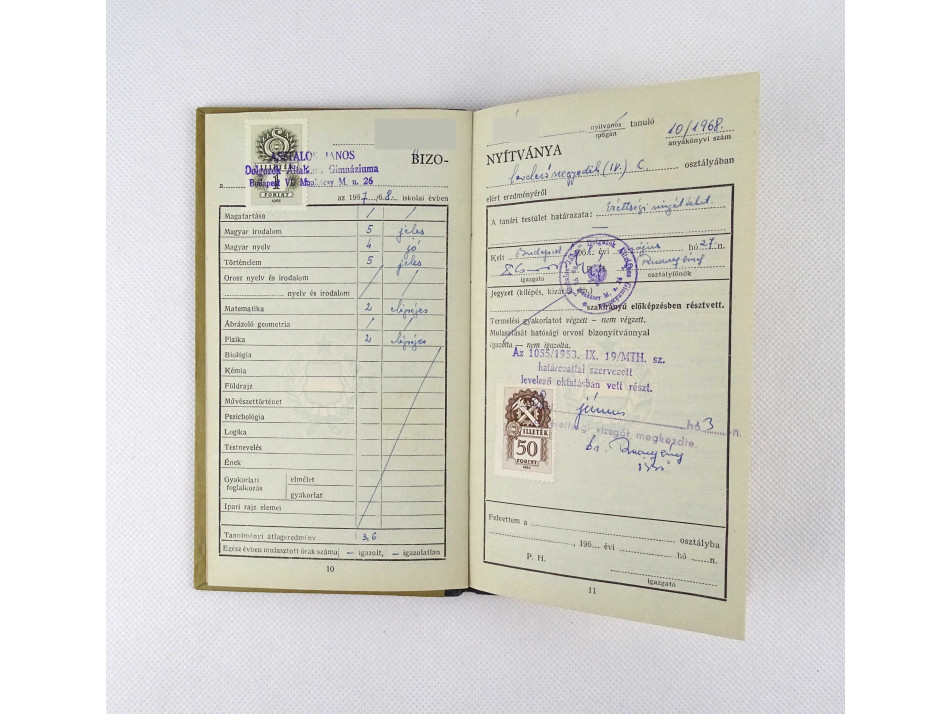 ASZTALOS JÁNOS
Dolgozók Által. Gimnáziuma
Budapest VII. M. u. 26
1
FORINT
BIZO-
a
az 1967/68. iskolai évben
Magatartása
Magyar irodalom 5 jeles
Magyar nyelv 4 jó
Történelem 5 jeles
Orosz nyelv és irodalom
nyelv és irodalom
Matematika 2 elégséges
Ábrázoló geometria
Fizika 2 elégséges
Biológia
Kémia
Földrajz
Művészettörténet
Pszichológia
Logika
Testnevelés
Ének
Gyakorlati foglalkozás elmélet
gyakorlat
Ipari rajz elemei
Tanulmányi átlageredmény 3,6
Egész évben mulasztott órák száma — igazolt, — igazolatlan
10
nyilvános tanuló 10/1968.
anyakönyvi szám
NYÍTVÁNYA
negyedik (IV.) C. osztályában
elért eredményéről
A tanári testület határozata: Érettségi vizsgát tehet.
Kelt Budapest 196 évi május hó 27 n.
igazgató osztályfőnök
Jegyzet (kilépés, kizárás stb.)
szakirányú előképzésben résztvett.
Termelési gyakorlatot végzett — nem végzett.
Mulasztását hatósági orvosi bizonyítvánnyal
igazolta — nem igazolta.
Az 1055/1953. IX. 19/MTH. sz.
határozattal szervezett
levelező oktatásban vett részt.
június hó 3 n.
érettségi vizsgát megkezdte.
ILLETÉK
50
FORINT
Felvettem a osztályba
, 196 évi hó n.
P. H.
igazgató
11